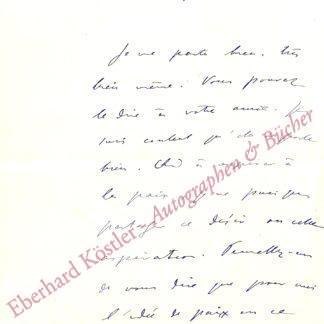 Je me porte bien, très
bien même. Vous pouvez
le dire à votre amie. Je
suis content qu'elle
bien.
la paix
partage ce désir ou cette
aspiration. Permettez-moi
de vous dire que pour moi
l'idée de paix en ce
Eberhard Köstler - Autographen & Bücher